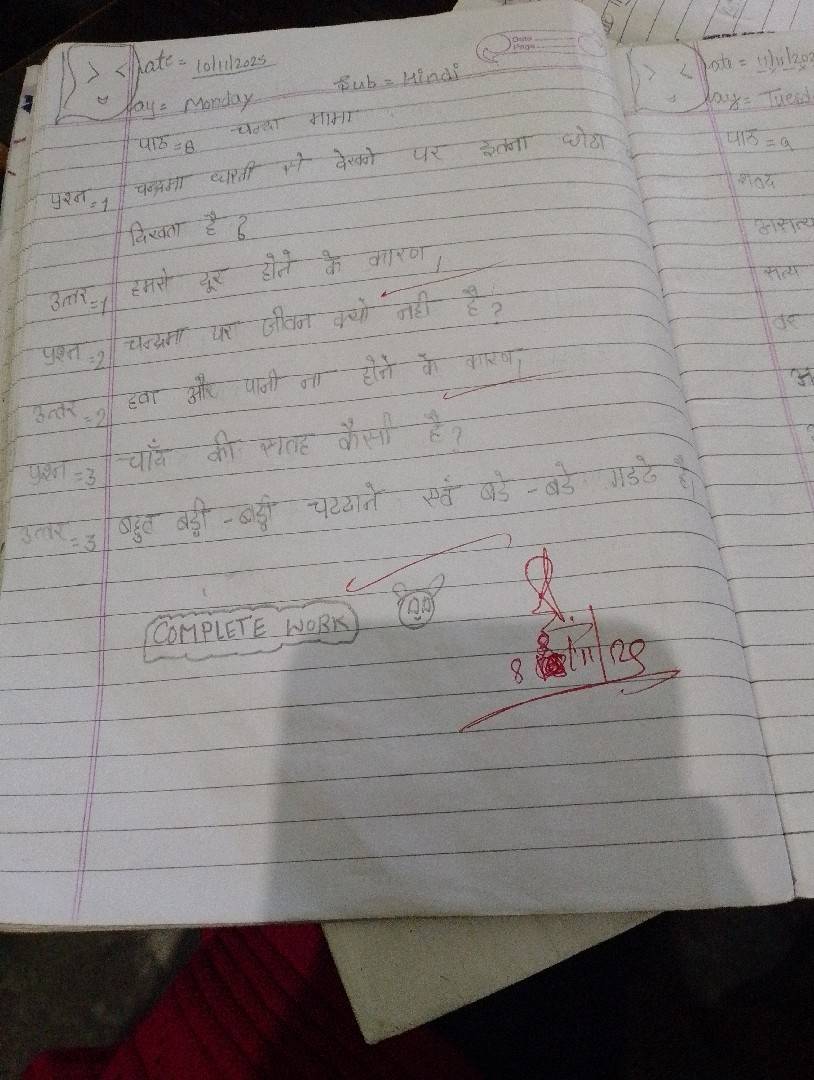 Date = 10/11/2025
Day = Monday
Sub = Hindi
Date
Page
पाठ = 8 चन्दा मामा
प्रश्न = 1 चन्द्रमा धरती से देखने पर इतना छोटा
दिखता है ?
उत्तर = 1 हमसे दूर होने के कारण।
प्रश्न = 2 चन्द्रमा पर जीवन क्यो नही है ?
उत्तर = 2 हवा और पानी ना होने के कारण।
प्रश्न = 3 चाँद की सतह कैसी है ?
उत्तर = 3 बहुत बड़ी - बड़ी चटटाने एवं बडे - बडे गडडे है।
COMPLETE WORK
Date = 11/11/202
Day = Tuesd
पाठ = 9
शब्द
असत्य
सत्य